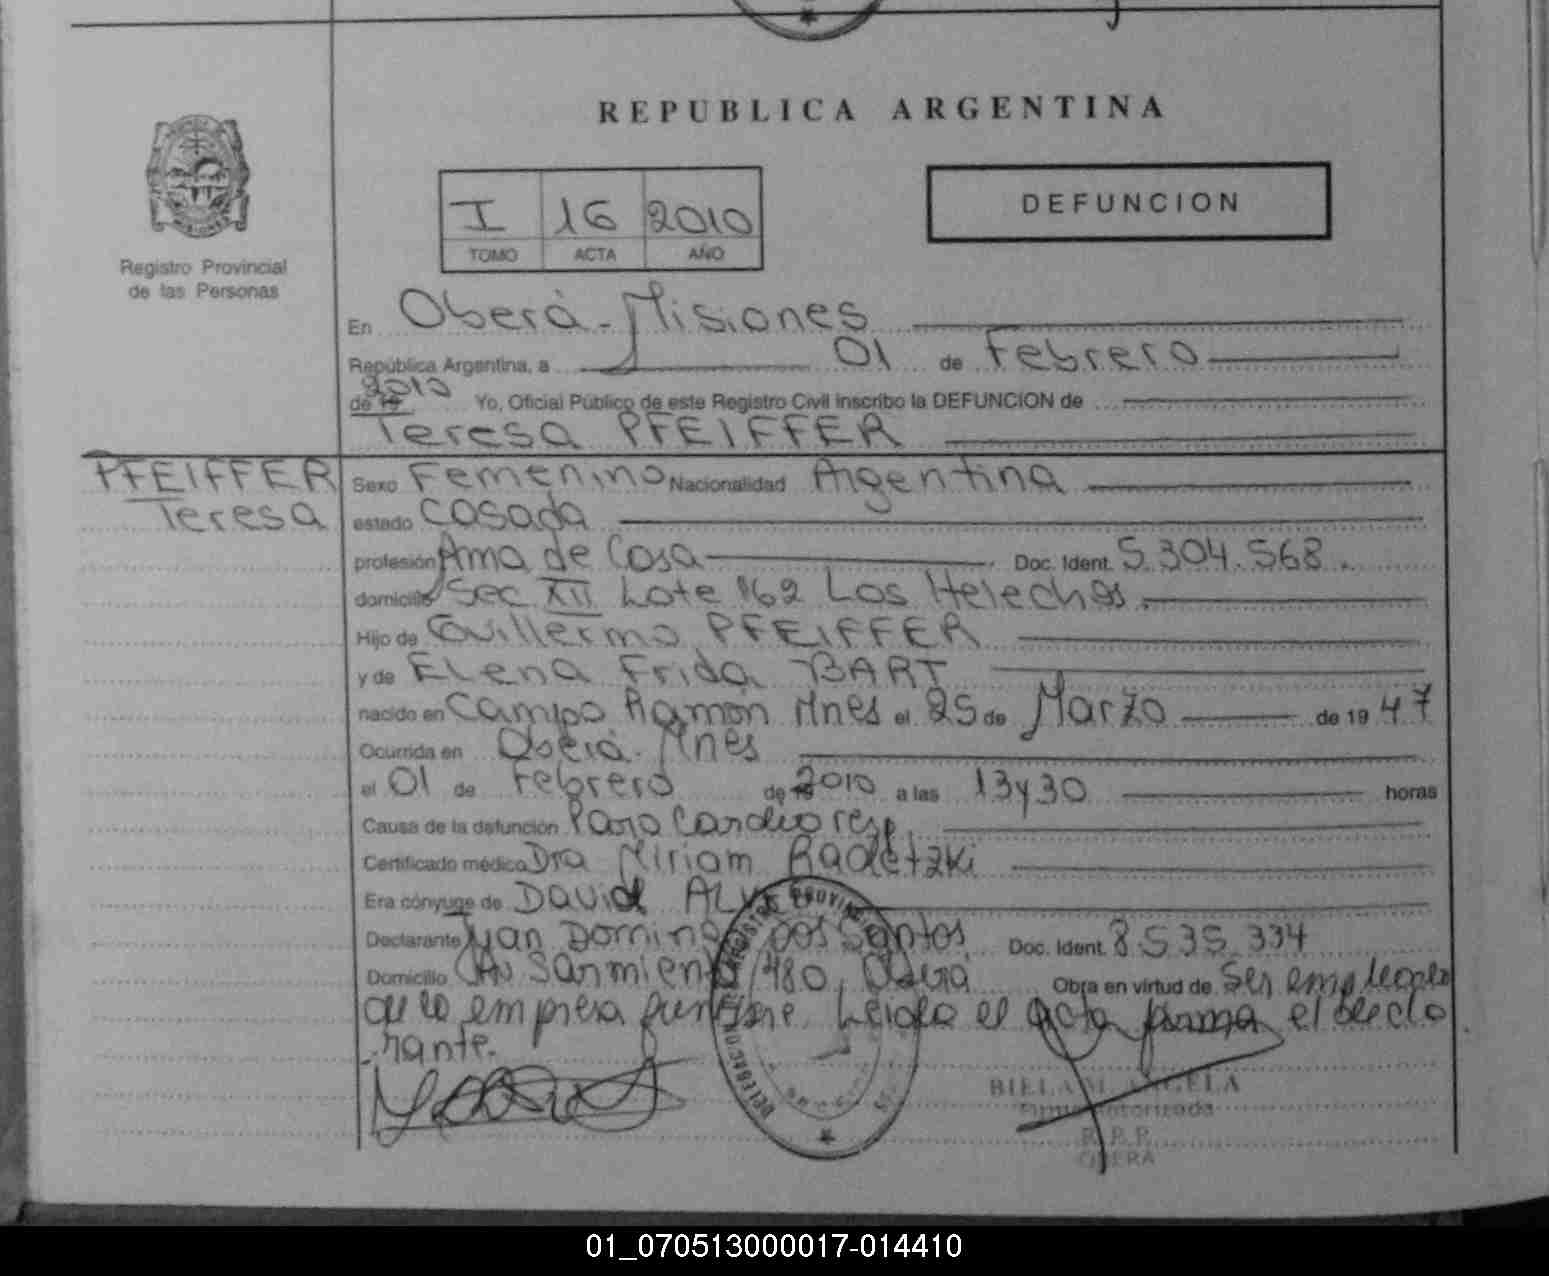 REPUBLICA ARGENTINA
Registro Provincial
de las Personas
I 16 2010
TOMO ACTA AÑO
DEFUNCION
En Oberá - Misiones
República Argentina, a 01 de Febrero
de 19 2010 Yo, Oficial Público de este Registro Civil inscribo la DEFUNCION de
Teresa PFEIFFER
PFEIFFER
Teresa
Sexo Femenino Nacionalidad Argentina
estado Casada
profesión Ama de Casa Doc. Ident. 5.304.568.
domicilio Sec XII Lote 162 Los Helechos.
Hijo de Guillermo PFEIFFER
y de Elena Frida BART
nacido en Campo Ramón Mnes el 25 de Marzo de 19 47
Ocurrida en Oberá - Mnes
el 01 de Febrero de 19 2010 a las 13y30 horas
Causa de la defunción Paro Cardio resp.
Certificado médico Dra Miriam Radetzki
Era cónyuge de David
Declarante Juan Domingo Dos Santos Doc. Ident. 8.535.334
Domicilio Av Sarmiento 480, Oberá Obra en virtud de Ser empleado
de la empresa funebre. Leida el acta firma el decla
rante.
BIELA M. ANGELA
Firma Autorizada
R. P. P.
OBERA
01_070513000017-014410